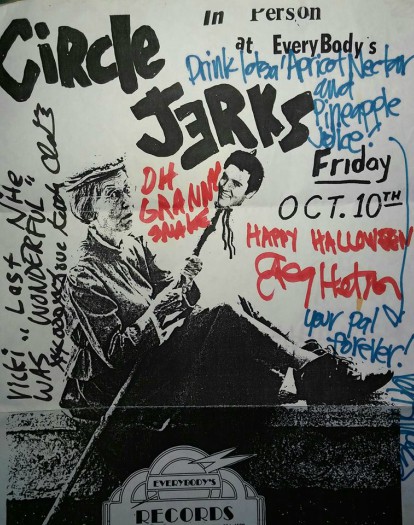 In Person
at EveryBody's
CiRcle
JERKS
Drink lotsa' Apricot Nectar
and
Pineapple
Juice!
Friday
OCT. 10TH
OH
GRANNY
SHAKE
HAPPY HALLOWEEN
Greg Hetson
your pal
forever!
VICKI "LAST NITE
WAS WONDERFUL"
XXOOXX love
EVERYBODY'S
RECORDS